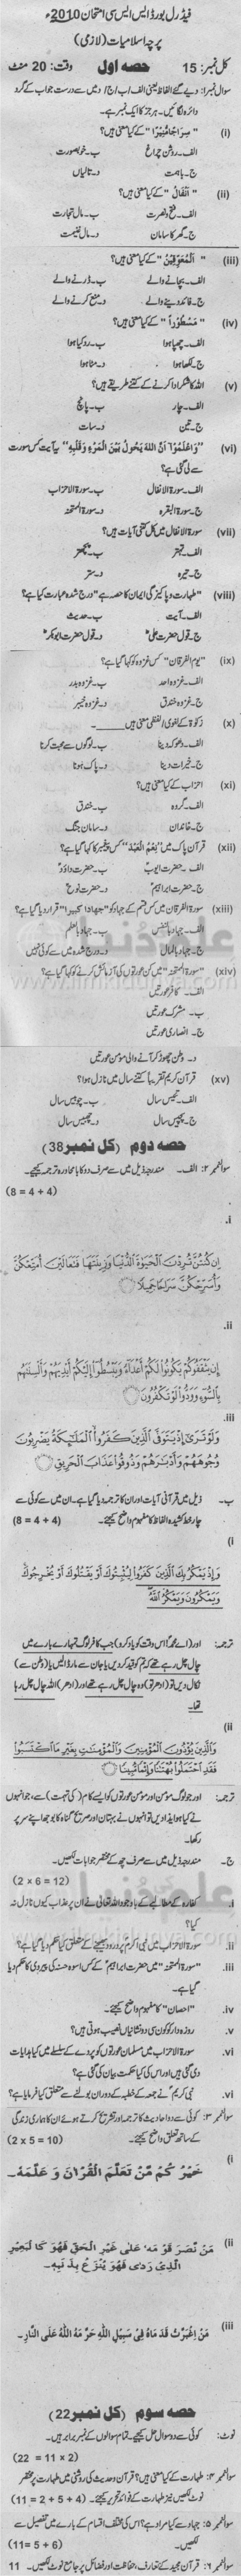 فیڈرل بورڈ ایس ایس سی امتحان 2010ء
پرچہ اسلامیات (لازمی)
کل نمبر: 15 حصہ اول وقت: 20 منٹ
سوال نمبر ا: دیے گئے الفاظ یعنی الف / ب / ج / د میں سے درست جواب کے گرد
دائرہ لگائیں۔ ہر جز کا ایک نمبر ہے۔
(i) "سِرَاجًا مُّنِیْرًا" کے کیا معنی ہیں؟
الف۔ روشن چراغ ب۔ خوبصورت
ج۔ باہمت د۔ تالیاں
(ii) "اَنْفَالُ" کے کیا معنی ہیں؟
الف۔ فتح و نصرت ب۔ مال تجارت
ج۔ گھر کا سامان د۔ مال غنیمت
(iii) "اَلْمُعَوِّقِیْنَ" کے کیا معنی ہیں؟
الف۔ بچانے والے ب۔ ڈرنے والے
ج۔ فائدہ دینے والے د۔ منع کرنے والے
(iv) "مَسْطُوْرًا" کے کیا معنی ہیں؟
الف۔ چھپا ہوا ب۔ رد کیا ہوا
ج۔ لکھا ہوا د۔ مٹا ہوا
(v) اللہ کا شکر ادا کرنے کے کتنے طریقے ہیں؟
الف۔ چار ب۔ پانچ
ج۔ تین د۔ سات
(vi) "وَاعْلَمُوْٓا اَنَّ اللہَ یَحُوْلُ بَیْنَ الْمَرْءِ وَقَلْبِہٖ" یہ آیت کس سورت
سے لی گئی ہے؟
الف۔ سورۃ الانفال ب۔ سورۃ الاحزاب
ج۔ سورۃ البقرہ د۔ سورۃ الممتحنہ
(vii) سورۃ الانفال میں کل کتنی آیات ہیں؟
الف۔ تہتر ب۔ پچھتر
ج۔ تیرہ د۔ ستر
(viii) "طہارت و پاکیزگی ایمان کا حصہ ہے" درج شدہ عبارت کیا ہے؟
الف۔ آیت ب۔ حدیث
ج۔ قول حضرت علیؓ د۔ قول حضرت ابوبکرؓ
(ix) "یوم الفرقان" کس غزوہ کو کہا گیا ہے؟
الف۔ غزوہ احد ب۔ غزوہ بدر
ج۔ غزوہ خندق د۔ غزوہ خیبر
(x) زکوٰۃ کے لغوی/لفظی معنی ہیں ______۔
الف۔ دھوکہ دینا ب۔ لوگوں سے محبت کرنا
ج۔ خیرات دینا د۔ پاک ہونا
(xi) احزاب کے کیا معنی ہیں؟
الف۔ گروہ ب۔ خندق
ج۔ خاندان د۔ سامان جنگ
(xii) قرآن پاک میں "نِعْمَ الْعَبْدُ" کس پیغمبر کو کہا گیا ہے؟
الف۔ حضرت ایوبؑ ب۔ حضرت داؤدؑ
ج۔ حضرت ابراہیمؑ د۔ حضرت نوحؑ
(xiii) سورۃ الفرقان میں کس قسم کے جہاد کو "جِهَادًا كَبِيرًا" قرار دیا گیا ہے؟
الف۔ جہاد بالنفس ب۔ جہاد بالعلم
ج۔ جہاد بالمال د۔ درج شدہ میں سے کوئی نہیں
(xiv) "سورۃ الممتحنہ" میں کن عورتوں کی آزمائش کرنے کو کہا گیا ہے؟
الف۔ کافر عورتیں
ب۔ مشرک عورتیں
ج۔ انصاری عورتیں
د۔ وطن چھوڑ کر آنے والی مومن عورتیں
(xv) قرآن کریم تقریباً کتنے سال میں نازل ہوا؟
الف۔ تئیس سال ب۔ چوبیس سال
ج۔ پچیس سال د۔ چھبیس سال
حصہ دوم (کل نمبر 38)
سوال نمبر ۲: الف۔ مندرجہ ذیل میں سے صرف دو کا بامحاورہ ترجمہ کیجیے۔
(8 = 4 + 4)
.i
اِنْ كُنْتُنَّ تُرِدْنَ الْحَیٰوةَ الدُّنْیَا وَزِیْنَتَهَا فَتَعَالَیْنَ اُمَتِّعْكُنَّ
وَاُسَرِّحْكُنَّ سَرَاحًا جَمِیْلًا
.ii
اِنْ یَّثْقَفُوْكُمْ یَكُوْنُوْا لَكُمْ اَعْدَآءً وَّیَبْسُطُوْٓا اِلَیْكُمْ اَیْدِیَهُمْ وَاَلْسِنَتَهُمْ
بِالسُّوْٓءِ وَوَدُّوْا لَوْ تَكْفُرُوْنَ
.iii
وَلَوْ تَرٰٓی اِذْ یَتَوَفَّی الَّذِیْنَ كَفَرُوا الْمَلٰٓئِكَةُ یَضْرِبُوْنَ
وُجُوْهَهُمْ وَاَدْبَارَهُمْ وَذُوْقُوْا عَذَابَ الْحَرِیْقِ
ب۔ ذیل میں قرآنی آیات اور ان کا ترجمہ دیا گیا ہے۔ ان میں سے کوئی سے
چار خط کشیدہ الفاظ کا مفہوم واضح کیجیے۔ (8 = 4 + 4)
(i
وَاِذْ یَمْكُرُ بِكَ الَّذِیْنَ كَفَرُوْا لِیُثْبِتُوْكَ اَوْ یَقْتُلُوْكَ اَوْ یُخْرِجُوْكَ
وَیَمْكُرُوْنَ وَیَمْكُرُ اللّٰهُ
ترجمہ: اور (اے محمدؐ اس وقت کو یاد کرو) جب کافر لوگ تمہارے بارے میں
چال چل رہے تھے کہ تم کو قید کر دیں یا جان سے مار ڈالیں یا (وطن سے)
نکال دیں تو (ادھر تو) وہ چال چل رہے تھے اور (ادھر) اللہ چال چل رہا
تھا۔
(ii
وَالَّذِیْنَ یُؤْذُوْنَ الْمُؤْمِنِیْنَ وَالْمُؤْمِنٰتِ بِغَیْرِ مَا اكْتَسَبُوْا
فَقَدِ احْتَمَلُوْا بُهْتَانًا وَّاِثْمًا مُّبِیْنًا
ترجمہ: اور جو لوگ مومن اور مومن عورتوں کو ایسے کام (کی تہمت) سے، جو انہوں
نے کیا ہو ایذا دیں تو انہوں نے بہتان اور صریح گناہ کا بوجھ اپنے سر پر
رکھا۔
ج۔ مندرجہ ذیل میں سے صرف چھ کے مختصر جوابات لکھیں۔
(2 x 6 = 12)
.i کفار کے مطالبے کے باوجود اللہ تعالیٰ نے ان پر عذاب کیوں نازل نہ
کیا؟
.ii سورۃ الاحزاب میں نبی اکرمؐ پر درود بھیجنے کے متعلق کیا حکم دیا گیا ہے؟
.iii "سورۃ الممتحنہ" میں حضرت ابراہیمؑ کے کس اسوہ حسنہ کی پیروی کا حکم دیا
گیا ہے۔
.iv "احصان" کا مفہوم واضح کیجیے۔
.v روزہ دار کو کون سی دو نشانیاں نصیب ہوتی ہیں؟
.vi سورۃ الاحزاب میں مسلمان عورتوں کو پردے کے سلسلے میں کیا ہدایات
دی گئی ہیں اور اس کی کیا حکمت بیان کی گئی ہے؟
.vi نبی کریمؐ نے جمعہ کے خطبہ کے دوران بولنے سے متعلق کیا فرمایا ہے؟
سوال نمبر ۳: کوئی سے دو احادیث کا ترجمہ اور تشریح کرتے ہوئے ان کا ہماری زندگی
کے ساتھ تعلق واضح کیجیے۔ (2 x 5 = 10)
(i
خَیْرُ كُمْ مَّنْ تَعَلَّمَ الْقُرْاٰنَ وَ عَلَّمَهٗ۔
(ii مَنْ نَصَرَ قَوْ مَهٗ عَلٰی غَیْرِ الْحَقِّ فَهُوَ كَا لْبَعِیْرِ
الَّذِیْ رَدٰی فَهُوَ یُنْزَعُ بِذَ نَبِهٖ۔
(iii مَنِ اغْبَرَّتْ قَدَ مَاهُ فِیْ سَبِیْلِ اللّٰهِ حَرَّ مَهُ اللّٰهُ عَلَی النَّارِ۔
حصہ سوم (کل نمبر 22)
نوٹ: کوئی سے دو سوال حل کیجیے۔ تمام سوالوں کے نمبر برابر ہیں۔
(22 = 11 x 2)
سوال نمبر ۴: طہارت کے کیا معنی ہیں؟ قرآن و حدیث کی روشنی میں طہارت پر مختصر
نوٹ لکھیں نیز طہارت کے فوائد تحریر کیجیے۔ (11 = 2 + 5 + 4)
سوال نمبر ۵: جہاد سے کیا مراد ہے؟ اس کی مختلف اقسام کے بارے میں تفصیل سے
لکھیں۔ (11= 5 + 6)
سوال نمبر ۶: قرآن مجید کے تعارف، حفاظت اور فضائل پر جامع نوٹ لکھیں۔ 11